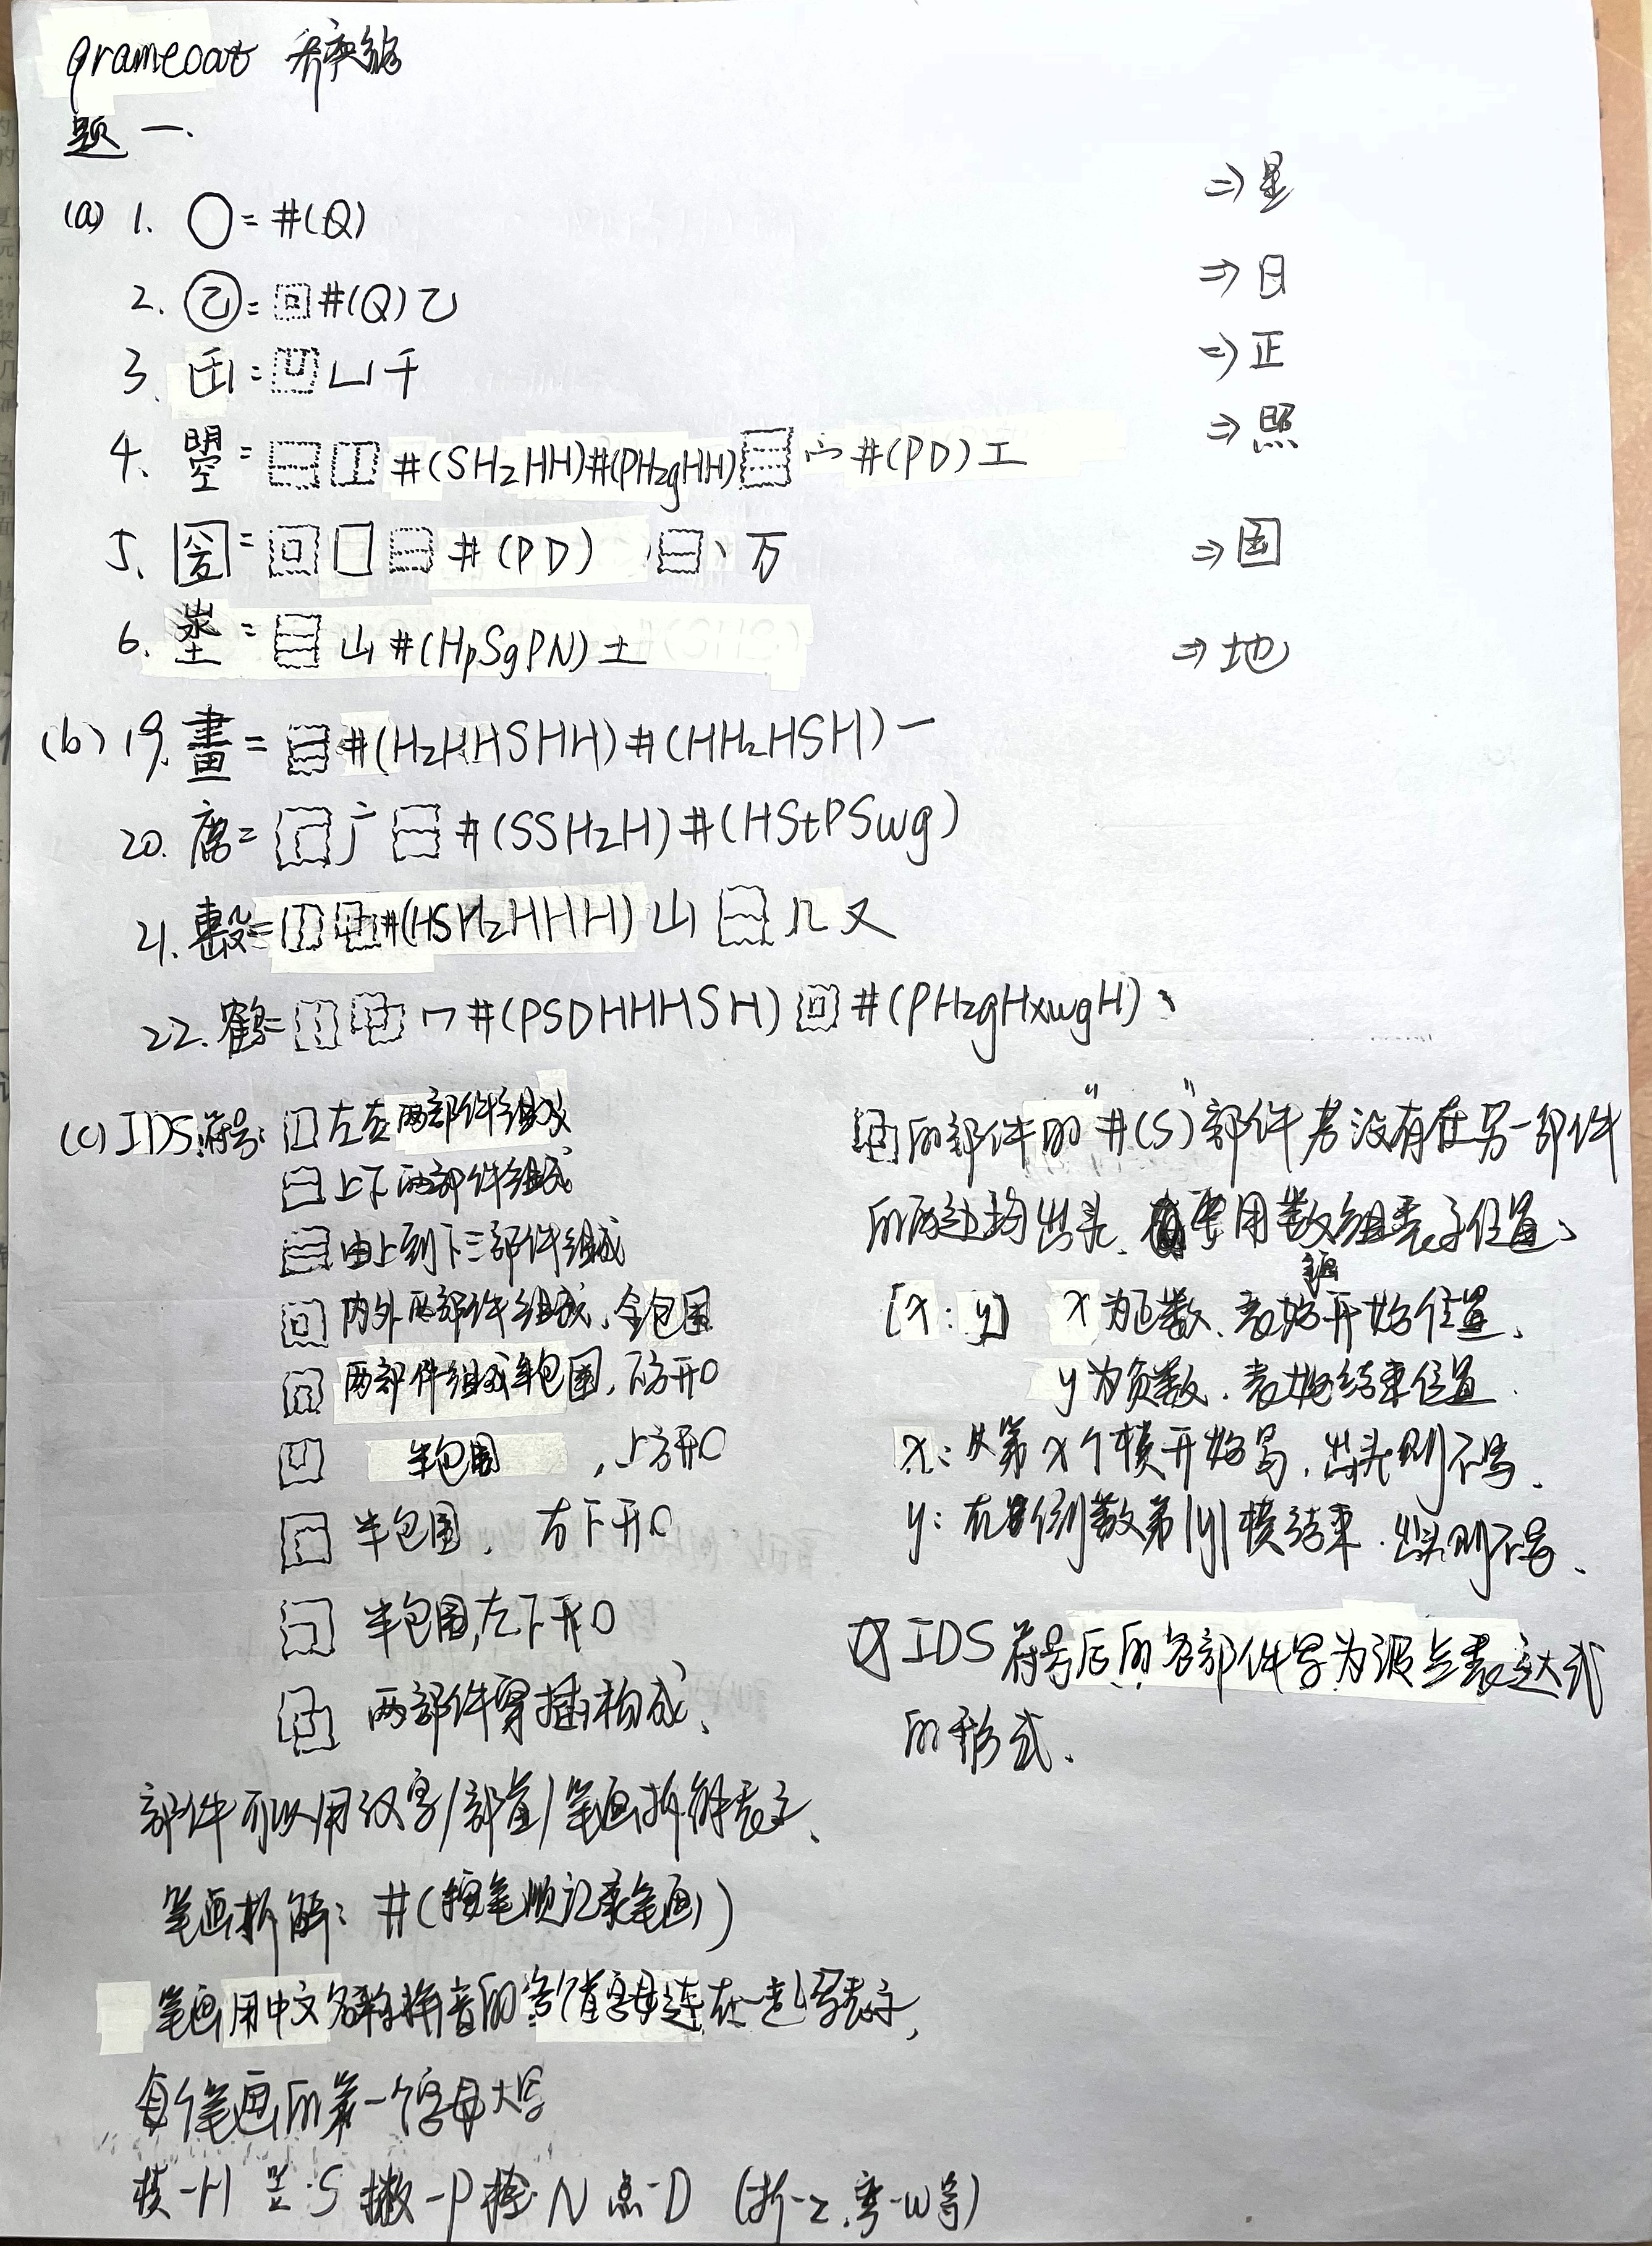 gramecoat
题一.
(a) 1. 〇=#(Q) ⇒星
2. =⿴#(Q)乙 ⇒日
3. =⿶凵千 ⇒正
4. 曌=⿱⿰#(SHzHH)#(PHzgHH)⿳宀#(PD)工 ⇒照
5. =⿴囗⿱#(PD)⿱丶万 ⇒国
6. 埊=⿳山#(HpSgPN)土 ⇒地
(b) 19. 畫=⿳#(HzHHSHH)#(HHzHSH)一
20. =⿸广⿱#(SSHzH)#(HStPSwg)
21. =⿰⿻#(HSHzHHH)山⿱几又
22. 鹤=⿰⿻冖#(PSDHHHSH)⿴#(PHzgHxwgH)丶
(c) IDS符号: ⿰左右两部件组成
⿱上下两部件组成
⿳由上到下三部件组成
⿴内外两部件组成,全包围
⿵两部件组成半包围,下方开口
⿶半包围,上方开口
⿸半包围,右下开口
⿹半包围,左下开口
⿻两部件穿插构成、
部件可以用汉字/部首/笔画拆解表示、
笔画拆解:#(按笔顺记录笔画)
笔画用中文名称拼音的首字母连在一起写表示,
每个笔画的第一个字母大写
横-H 竖-S 撇-P 捺-N 点-D (折-z.弯-w等)
⿻的部件的"#(S)"部件若没有在另一部件
的两边均出头、要用数组表示位置、
[x:y] x为正数、表始开始位置、
y为负数、表始结束位置.
x:从第x个横开始写,出头则不写、
y:在倒数第|y|横结束.出头则不写、
IDS符号后的各部件写为波兰表达式
的形式.